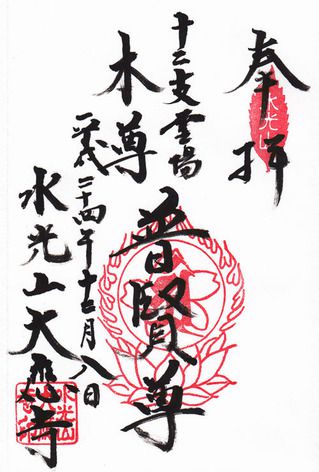 奉拝
水光山
十二支霊場
本尊
普賢尊
平成二十四年十二月八日
水光山大應寺